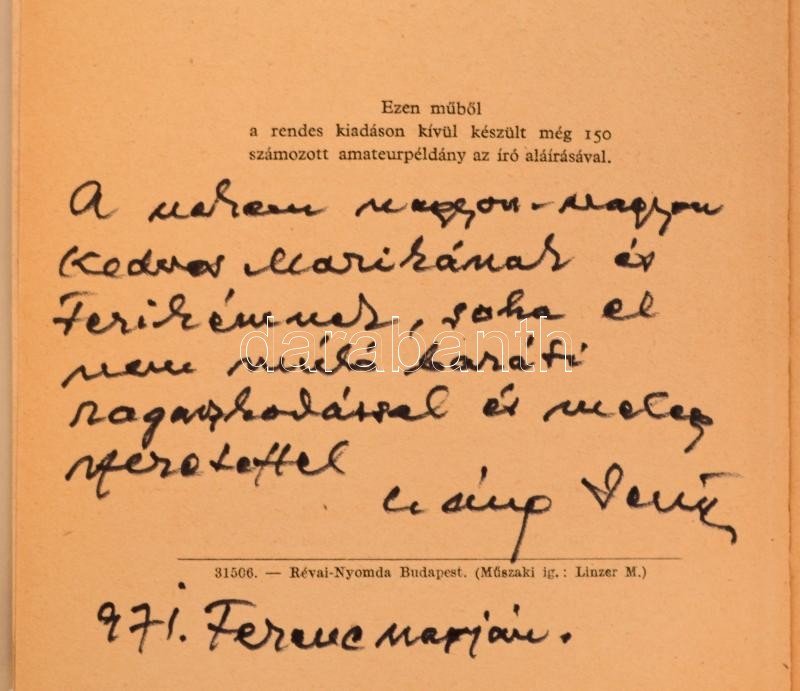 Ezen műből
a rendes kiadáson kívül készült még 150
számozott amateurpéldány az író aláírásával.
A nekem nagyon-nagyon
kedves Marikának és
Ferikémnek, soha el
nem múló baráti
ragaszkodással és meleg
szeretettel
Jenő
31506. — Révai-Nyomda Budapest. (Műszaki ig.: Linzer M.)
971. Ferenc napján.
darabanth